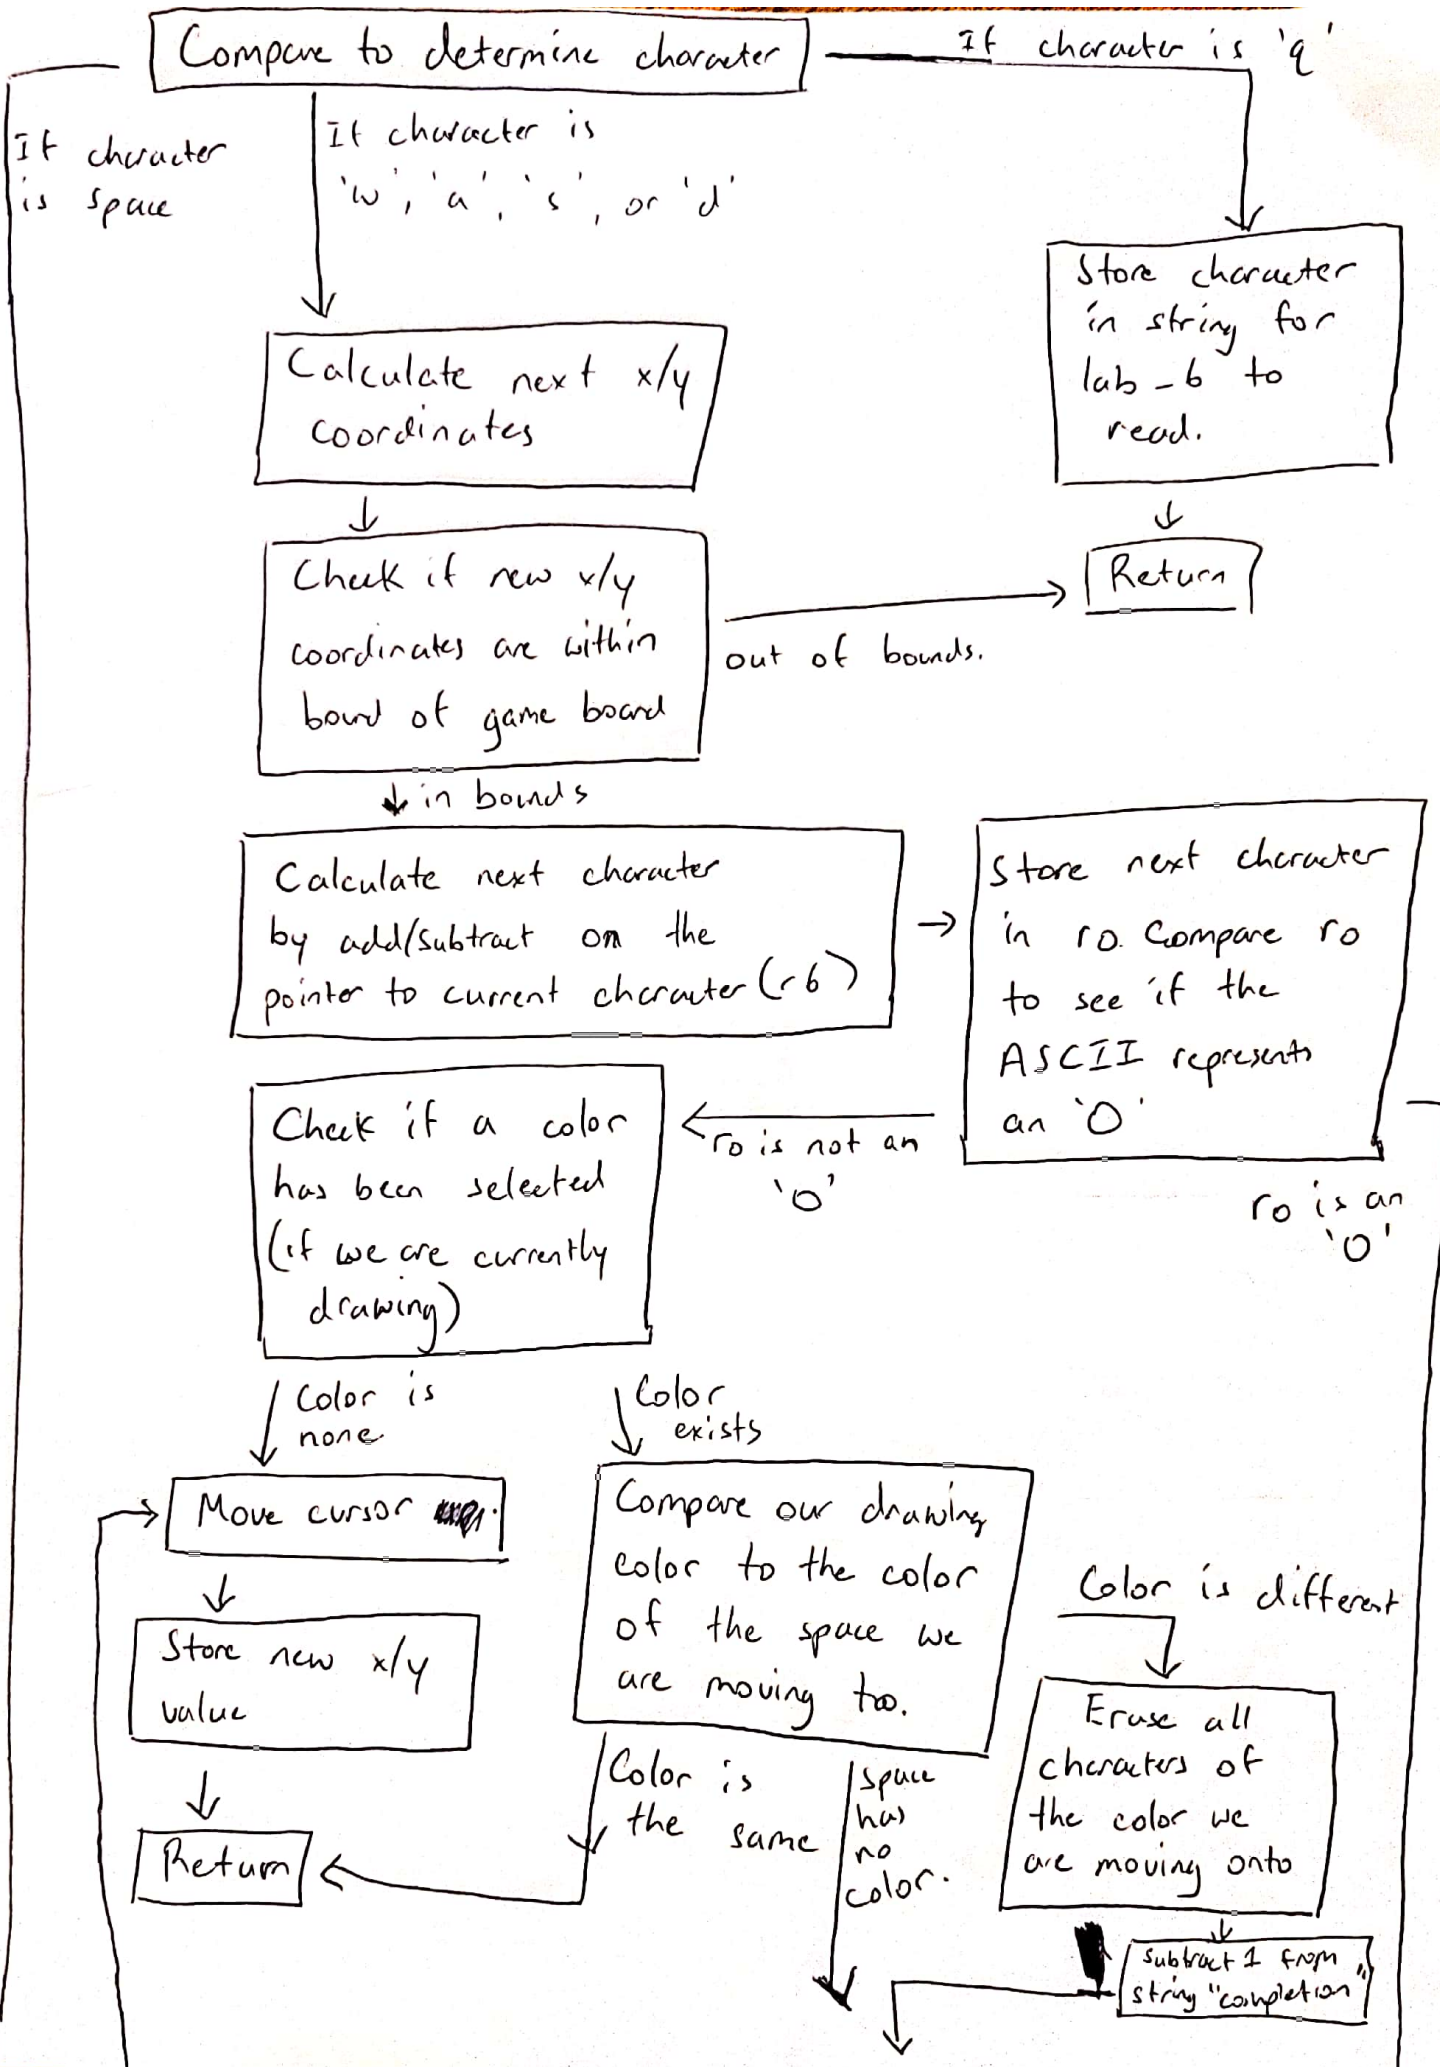 Compare to determine character
If character is 'q'
If character
is space
If character is
'w', 'a', 's', or 'd'
Store character
in string for
lab-6 to
read.
Calculate next x/y
coordinates
Return
Check if new x/y
coordinates are within
bound of game board
out of bounds.
in bounds
Calculate next character
by add/subtract on the
pointer to current character (r6)
Store next character
in r0. Compare r0
to see if the
ASCII represents
an 'O'
r0 is not an
'O'
r0 is an
'O'
Check if a color
has been selected
(if we are currently
drawing)
Color is
none
Color
exists
Move cursor
Compare our drawing
color to the color
of the space we
are moving too.
Color is different
Store new x/y
value
Erase all
characters of
the color we
are moving onto
Color is
the same
space
has
no
color.
Return
subtract 1 from
string "completion"